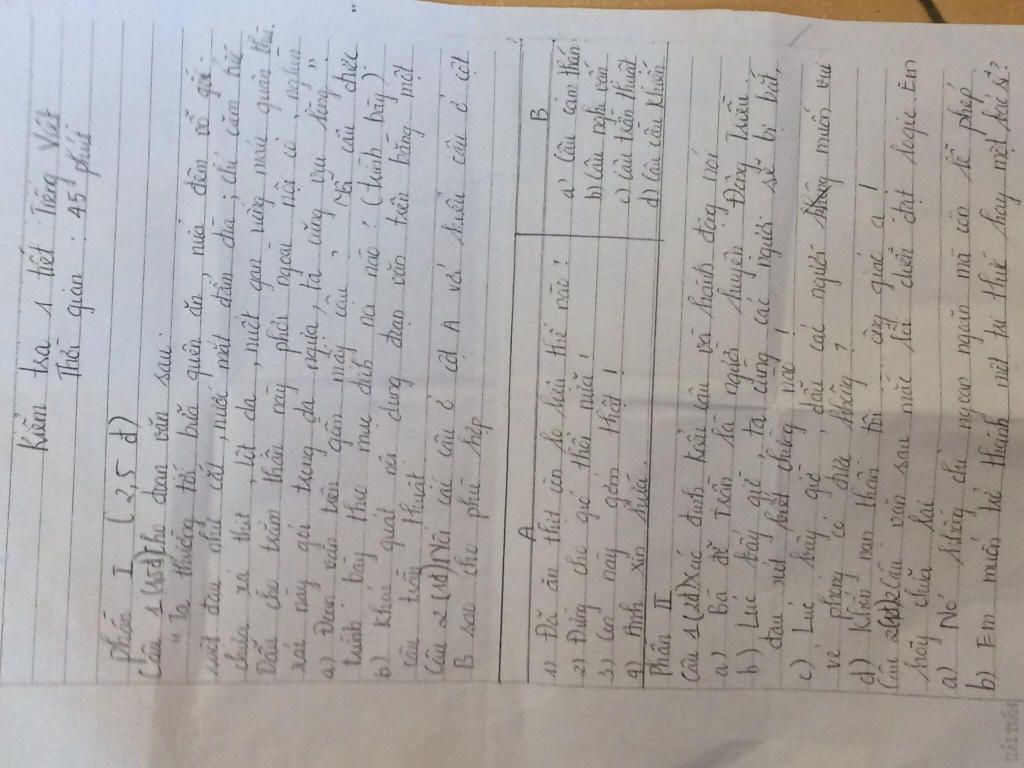 Kiểm tra 1 tiết Tiếng Việt
Thời gian : 45 phút
phần I ( 2,5 đ)
Câu 1 (1,5đ) Cho đoạn văn sau:
" Ta thường tới bữa quên ăn, nửa đêm vỗ gối,
ruột đau như cắt, nước mắt đầm đìa; chỉ căm tức
chưa xả thịt, lột da, nuốt gan uống máu quân thù.
Dẫu cho trăm thân này phơi ngoài nội cỏ, nghìn
xác này gói trong da ngựa, ta cũng vui lòng "
a) Đoạn văn trên gồm mấy câu, Mỗi câu được
trình bày theo mục đích nói nào ? (trình bày)
b) Khái quát nội dung đoạn văn trên bằng một
câu trần thuật
Câu 2 (1đ) Nối các câu ở cột A với kiểu câu ở cột
B sao cho phù hợp
A
B
1) Đã ăn thịt còn lo liệu thế nào ?
2) Đừng cho gió thổi nữa !
3) Con này gớm thật !
4) Anh xin hứa.
a) Câu cảm thán
b) Câu nghi vấn
c) Câu trần thuật
d) Câu cầu khiến
Phần II
Câu 1 (2đ) Xác định kiểu câu và hành động nói
a) Bà đỡ Trần là người huyện Đông Triều
b) Lúc bấy giờ ta cùng các người sẽ bị bắt,
đau xót biết chừng nào !
c) Lúc bấy giờ, dẫu các người không muốn vui
vẻ phỏng có được không ?
d) Khốn nạn thân tôi ! ông giáo ạ !
Câu 2 (1đ) 2 Câu văn sau mắc lỗi diễn đạt logic. Em
hãy chữa lại
a) Nó không chỉ ngoan ngoãn mà còn lễ phép
b) Em muốn trở thành một trí thức hay một bác sĩ ?
HẢI TIẾN